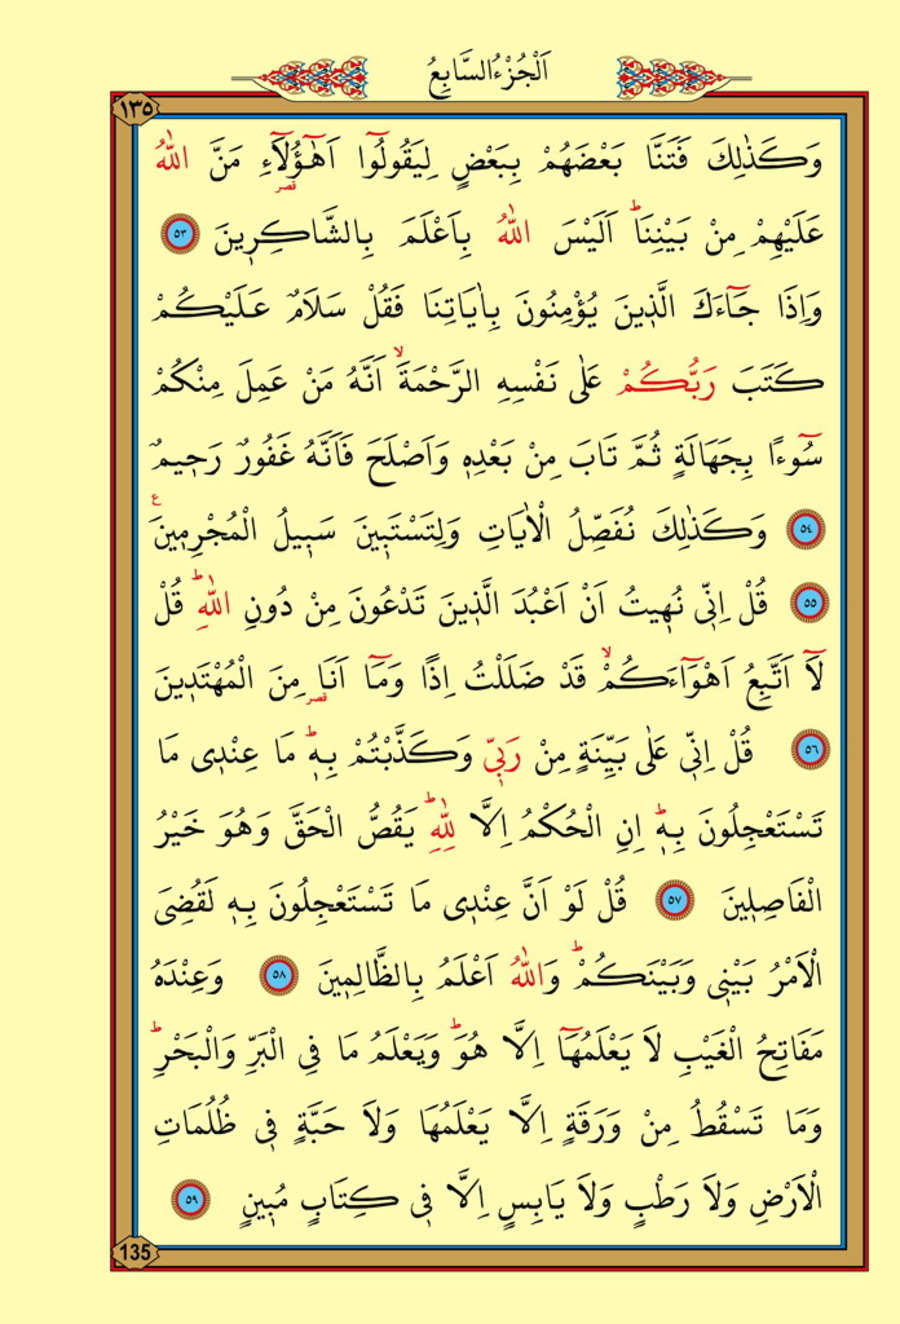 اَلْجُزْءُ السَّابِعُ
١٣٥
وَكَذٰلِكَ فَتَنَّا بَعْضَهُمْ بِبَعْضٍ لِيَقُولُٓوا اَهٰٓؤُ۬لَٓاءِ مَنَّ اللّٰهُ
قصر
عَلَيْهِمْ مِنْ بَيْنِنَاۜ اَلَيْسَ اللّٰهُ بِاَعْلَمَ بِالشَّاكِر۪ينَ ٥٣
وَاِذَا جَٓاءَكَ الَّذ۪ينَ يُؤْمِنُونَ بِاٰيَاتِنَا فَقُلْ سَلَامٌ عَلَيْكُمْ
كَتَبَ رَبُّكُمْ عَلٰى نَفْسِهِ الرَّحْمَةَۙ اَنَّهُ مَنْ عَمِلَ مِنْكُمْ
سُٓوءًا بِجَهَالَةٍ ثُمَّ تَابَ مِنْ بَعْدِه۪ وَاَصْلَحَ فَاَنَّهُ غَفُورٌ رَح۪يمٌ
٥٤ وَكَذٰلِكَ نُفَصِّلُ الْاٰيَاتِ وَلِتَسْتَب۪ينَ سَب۪يلُ الْمُجْرِم۪ينَ ع
٥٥ قُلْ اِنّ۪ي نُه۪يتُ اَنْ اَعْبُدَ الَّذ۪ينَ تَدْعُونَ مِنْ دُونِ اللّٰهِۜ قُلْ
لَٓا اَتَّبِعُ اَهْوَٓاءَكُمْۙ قَدْ ضَلَلْتُ اِذًا وَمَٓا اَنَا۬ مِنَ الْمُهْتَد۪ينَ
قصر
٥٦ قُلْ اِنّ۪ي عَلٰى بَيِّنَةٍ مِنْ رَبّ۪ي وَكَذَّبْتُمْ بِه۪ۜ مَا عِنْد۪ي مَا
تَسْتَعْجِلُونَ بِه۪ۜ اِنِ الْحُكْمُ اِلَّا لِلّٰهِۜ يَقُصُّ الْحَقَّ وَهُوَ خَيْرُ
الْفَاصِل۪ينَ ٥٧ قُلْ لَوْ اَنَّ عِنْد۪ي مَا تَسْتَعْجِلُونَ بِه۪ لَقُضِيَ
الْاَمْرُ بَيْن۪ي وَبَيْنَكُمْۜ وَاللّٰهُ اَعْلَمُ بِالظَّالِم۪ينَ ٥٨ وَعِنْدَهُ
مَفَاتِحُ الْغَيْبِ لَا يَعْلَمُهَٓا اِلَّا هُوَۜ وَيَعْلَمُ مَا فِي الْبَرِّ وَالْبَحْرِۜ
وَمَا تَسْقُطُ مِنْ وَرَقَةٍ اِلَّا يَعْلَمُهَا وَلَا حَبَّةٍ ف۪ي ظُلُمَاتِ
الْاَرْضِ وَلَا رَطْبٍ وَلَا يَابِسٍ اِلَّا ف۪ي كِتَابٍ مُب۪ينٍ ٥٩
135